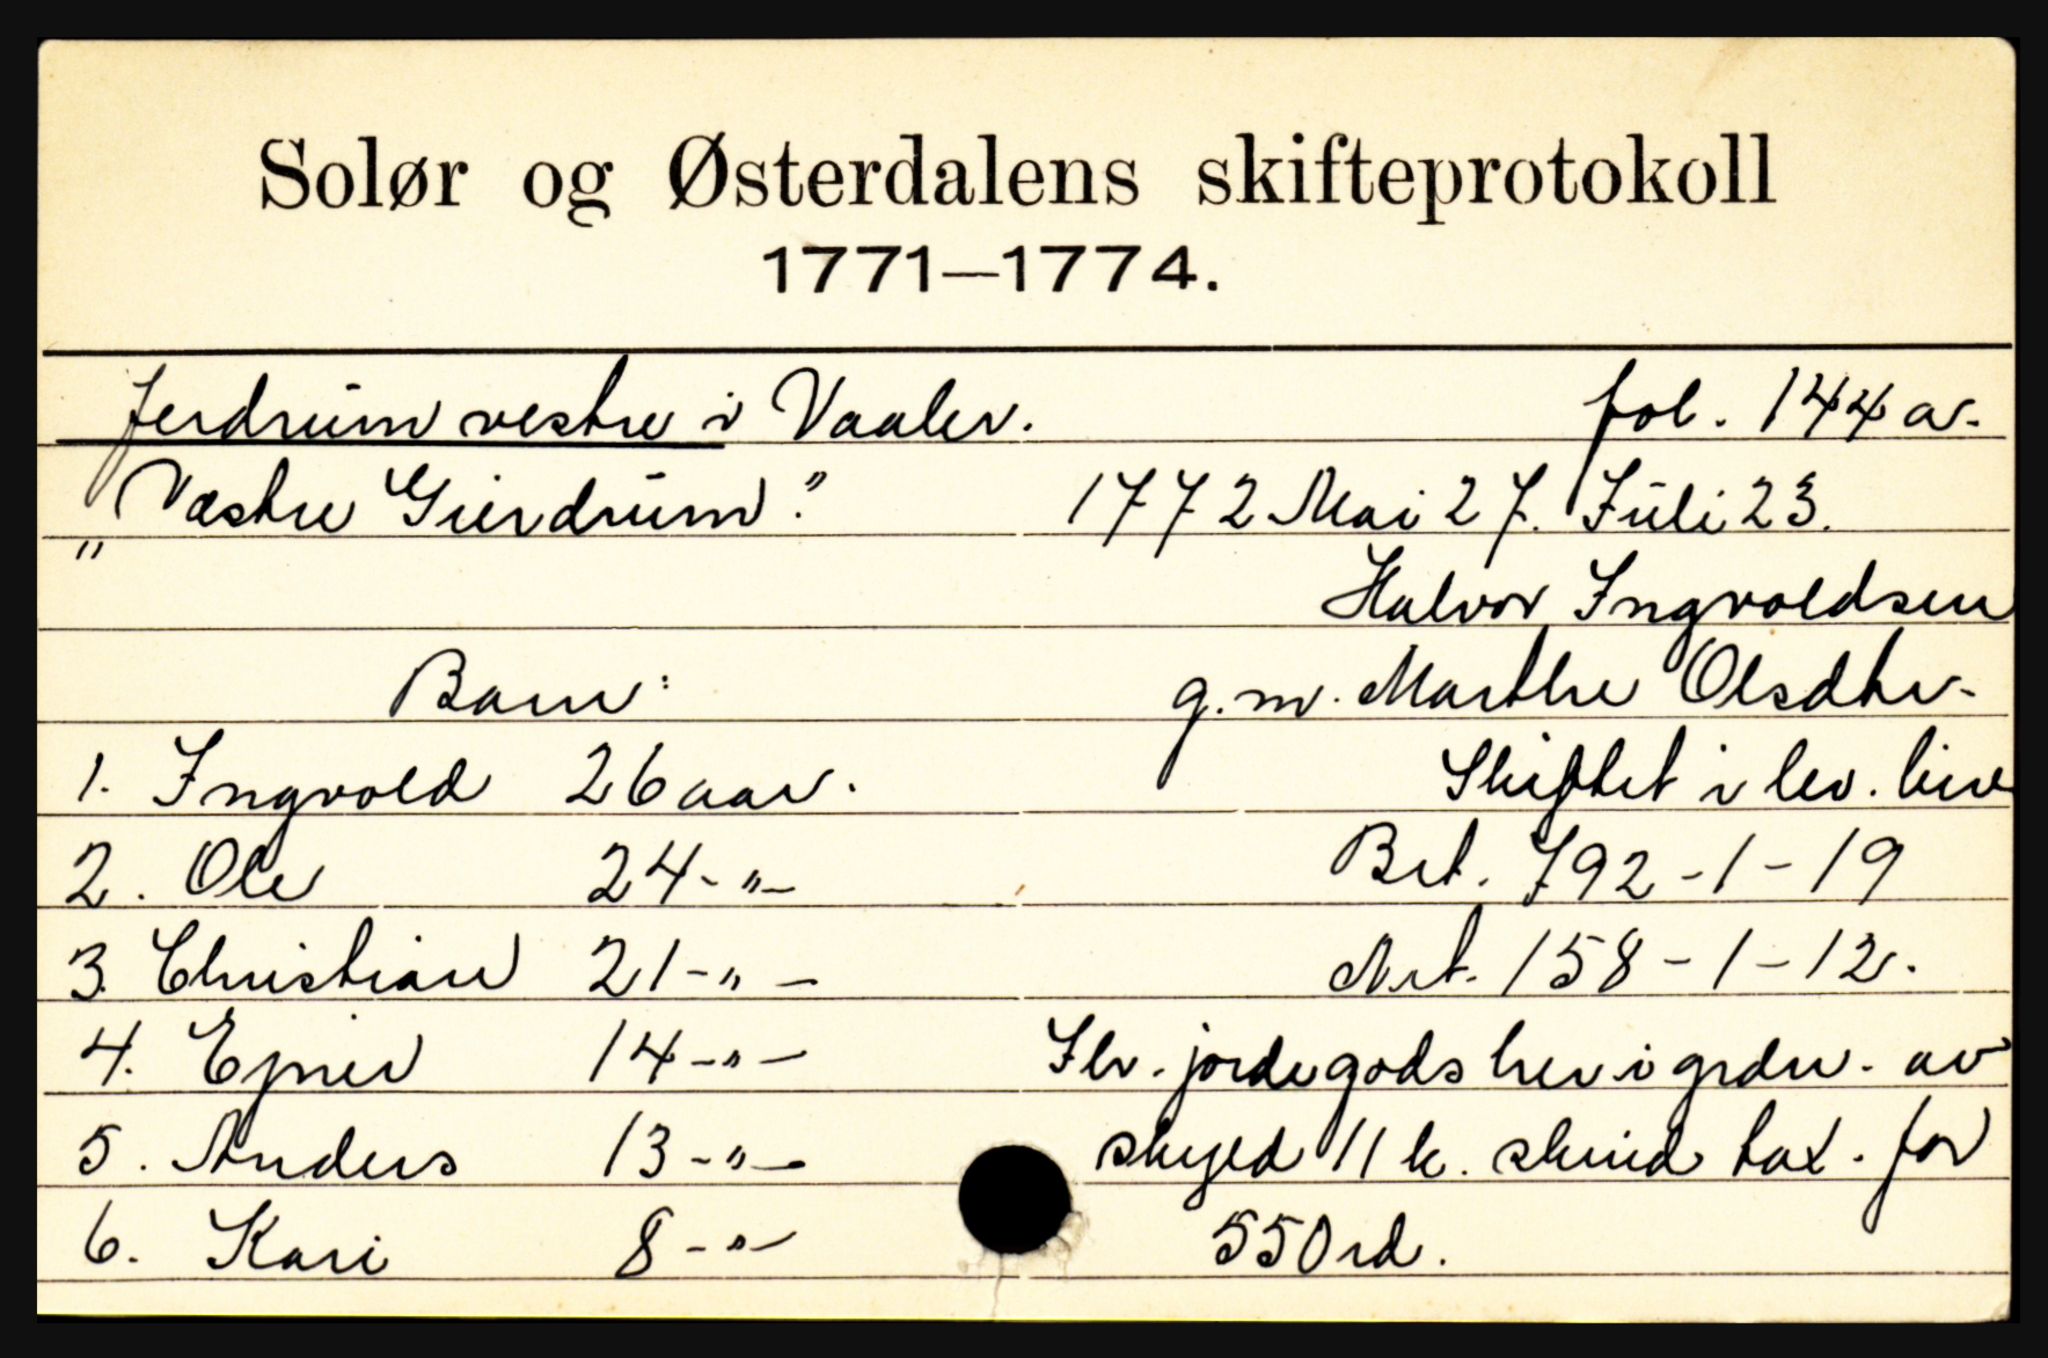 Solør og Østerdalens skifteprotokoll
1771—1774.
Jerdrum vestre i Vaaler. fol. 144 a.
"Væstre Gierdrum." 1772 Mai 27. Juli 23.
Halvor Ingvoldsen
Barn: g.m. Marthe Olsdtr.
1. Ingvold 26 aar. Skiftet i lev. live
2. Ole 24 - " - Brt. 792 - 1 - 19
3. Christian 21 - " - Nrt. 158 - 1 - 12.
4. Ejner 14 - " - Flr. jordegods her i grdn. av
5. Anders 13 - " - skyld 11 k. skind tax. for
6. Kari 8 - " - 550 rd.